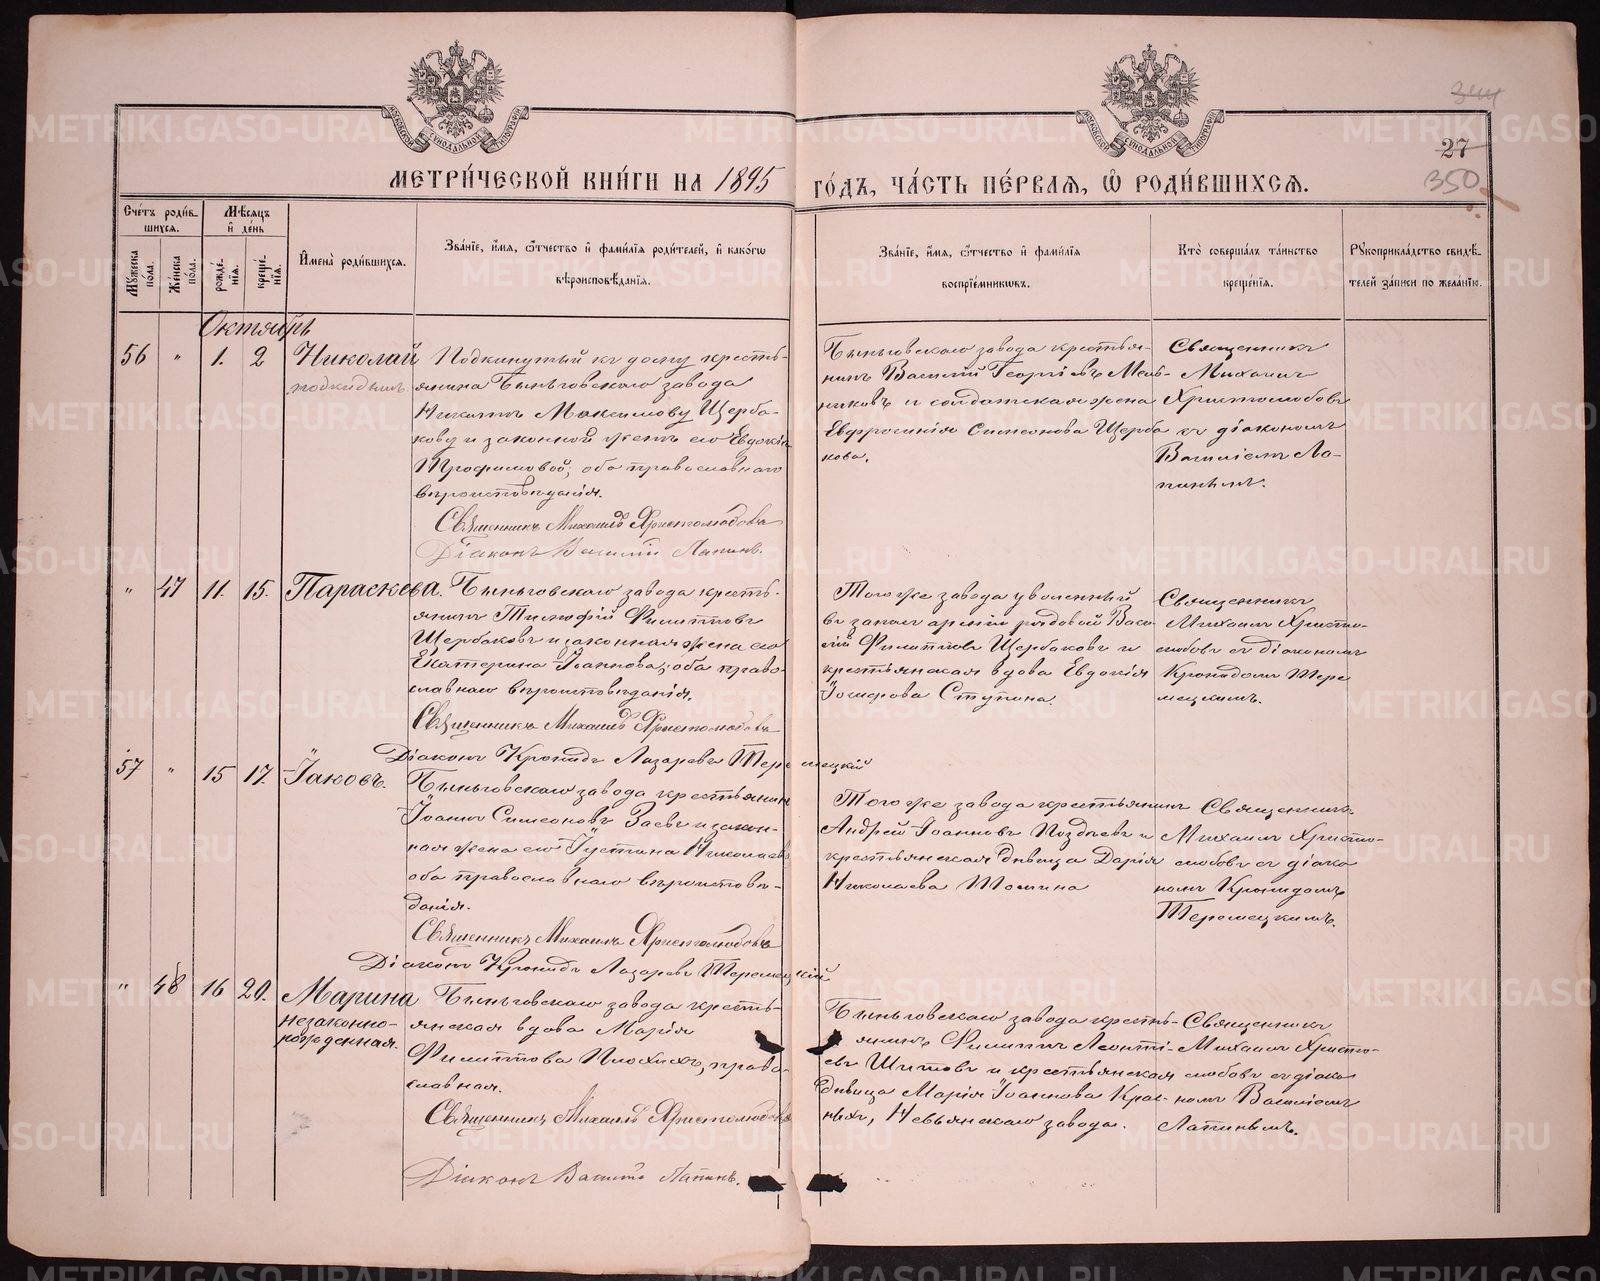 344
27
350
МОСКОВСКОЙ СѴНОДАЛЬНОЙ ТИПОГРАФІИ
МОСКОВСКОЙ СѴНОДАЛЬНОЙ ТИПОГРАФІИ
МЕТРИ́ЧЕСКОЙ КНИ́ГИ НА 1895 ГО́ДЪ, ЧА́СТЬ ПЕ́РВАЯ, Ѡ҆ РОДИ́ВШИХСЯ.
Сче́тъ роди́в-
шихся.
Мѣ́сяцъ
и҆ де́нь
Му́жеска
по́ла.
Же́нска
по́ла.
рожде́-
нїя.
креще́-
нїя.
И҆мена̀ роди́вшихся.
Зва́нїе, и҆́мя, ѻ҆́тчество и҆ фами́лїя роди́телей, и҆ како́гѡ
вѣроисповѣ́данїя.
Зва́нїе, и҆́мя, ѻ҆́тчество и҆ фами́лїя
воспрїе́мниковъ.
Кто̀ соверша́лъ та́инство
креще́нїя.
Рꙋкоприкла́дство свидѣ́-
телей за́писи по жела́нїю.
Октябрь
56 " 1. 2 Николай
подкидышъ
Подкинутый къ дому кресть-
янина Быньговскаго завода
Никиты Максимову Щерба-
кову и законной жены его Евдокіи
Трофимовой, оба православнаго
вѣроисповѣданія.
Священникъ Михаилъ Христолюбовъ
Діаконъ Василій Лапинъ.
Быньговскаго завода крестья-
нинъ Василій Георгіевъ Мель-
никовъ и солдатская жена
Евфросинія Симеонова Щерба
кова.
Священникъ
Михаилъ
Христолюбовъ
съ діакономъ
Василіемъ Ла-
пинымъ.
" 47 11. 15. Параскева.
Быньговскаго завода кресть-
янинъ Тимофій Филипповъ
Щербаковъ и законная жена его
Екатерина Іоаннова; оба право-
славнаго вѣроисповѣданія.
Священникъ Михаилъ Христолюбовъ
Діаконъ Кронидъ Лазаревъ Теремецкій
Того же завода уволенный
въ запасъ арміи рядовой Васи
лій Филипповъ Щербаковъ и
крестьянская вдова Евдокія
Іосифова Ступина.
Священникъ
Михаилъ Христо-
любовъ съ діакономъ
Кронидомъ Тере
мецкимъ.
57 " 15 17. Іаковъ.
Быньговскаго завода крестьянинъ
Іоаннъ Симеоновъ Заевъ и закон-
ная жена его Іустина Николаева
оба православнаго вѣроисповѣ-
данія.
Священникъ Михаилъ Христолюбовъ
Діаконъ Кронидъ Лазаревъ Теремецкій
Того же завода крестьянинъ
Андрей Іоанновъ Поздѣевъ и
крестьянская дѣвица Дарія
Николаева Тошина
Священникъ
Михаилъ Христо-
любовъ съ діако
номъ Кронидомъ
Теремецкимъ.
" 48 16 20. Марина
незаконно-
рожденная.
Быньговскаго завода кресть-
янская вдова Марія
Филиппова Плохихъ, право-
славная.
Священникъ Михаилъ Христолюбовъ
Діаконъ Василій Лапинъ.
Быньговскаго завода кресть-
янинъ Филиппъ Леонті-
евъ Шитовъ и крестьянская
дѣвица Марія Іоаннова Крас-
ныхъ, Невьянскаго завода.
Священникъ
Михаилъ Христо-
любовъ съ діако
номъ Василіемъ
Лапинымъ.
METRIKI.GASO-URAL.RU